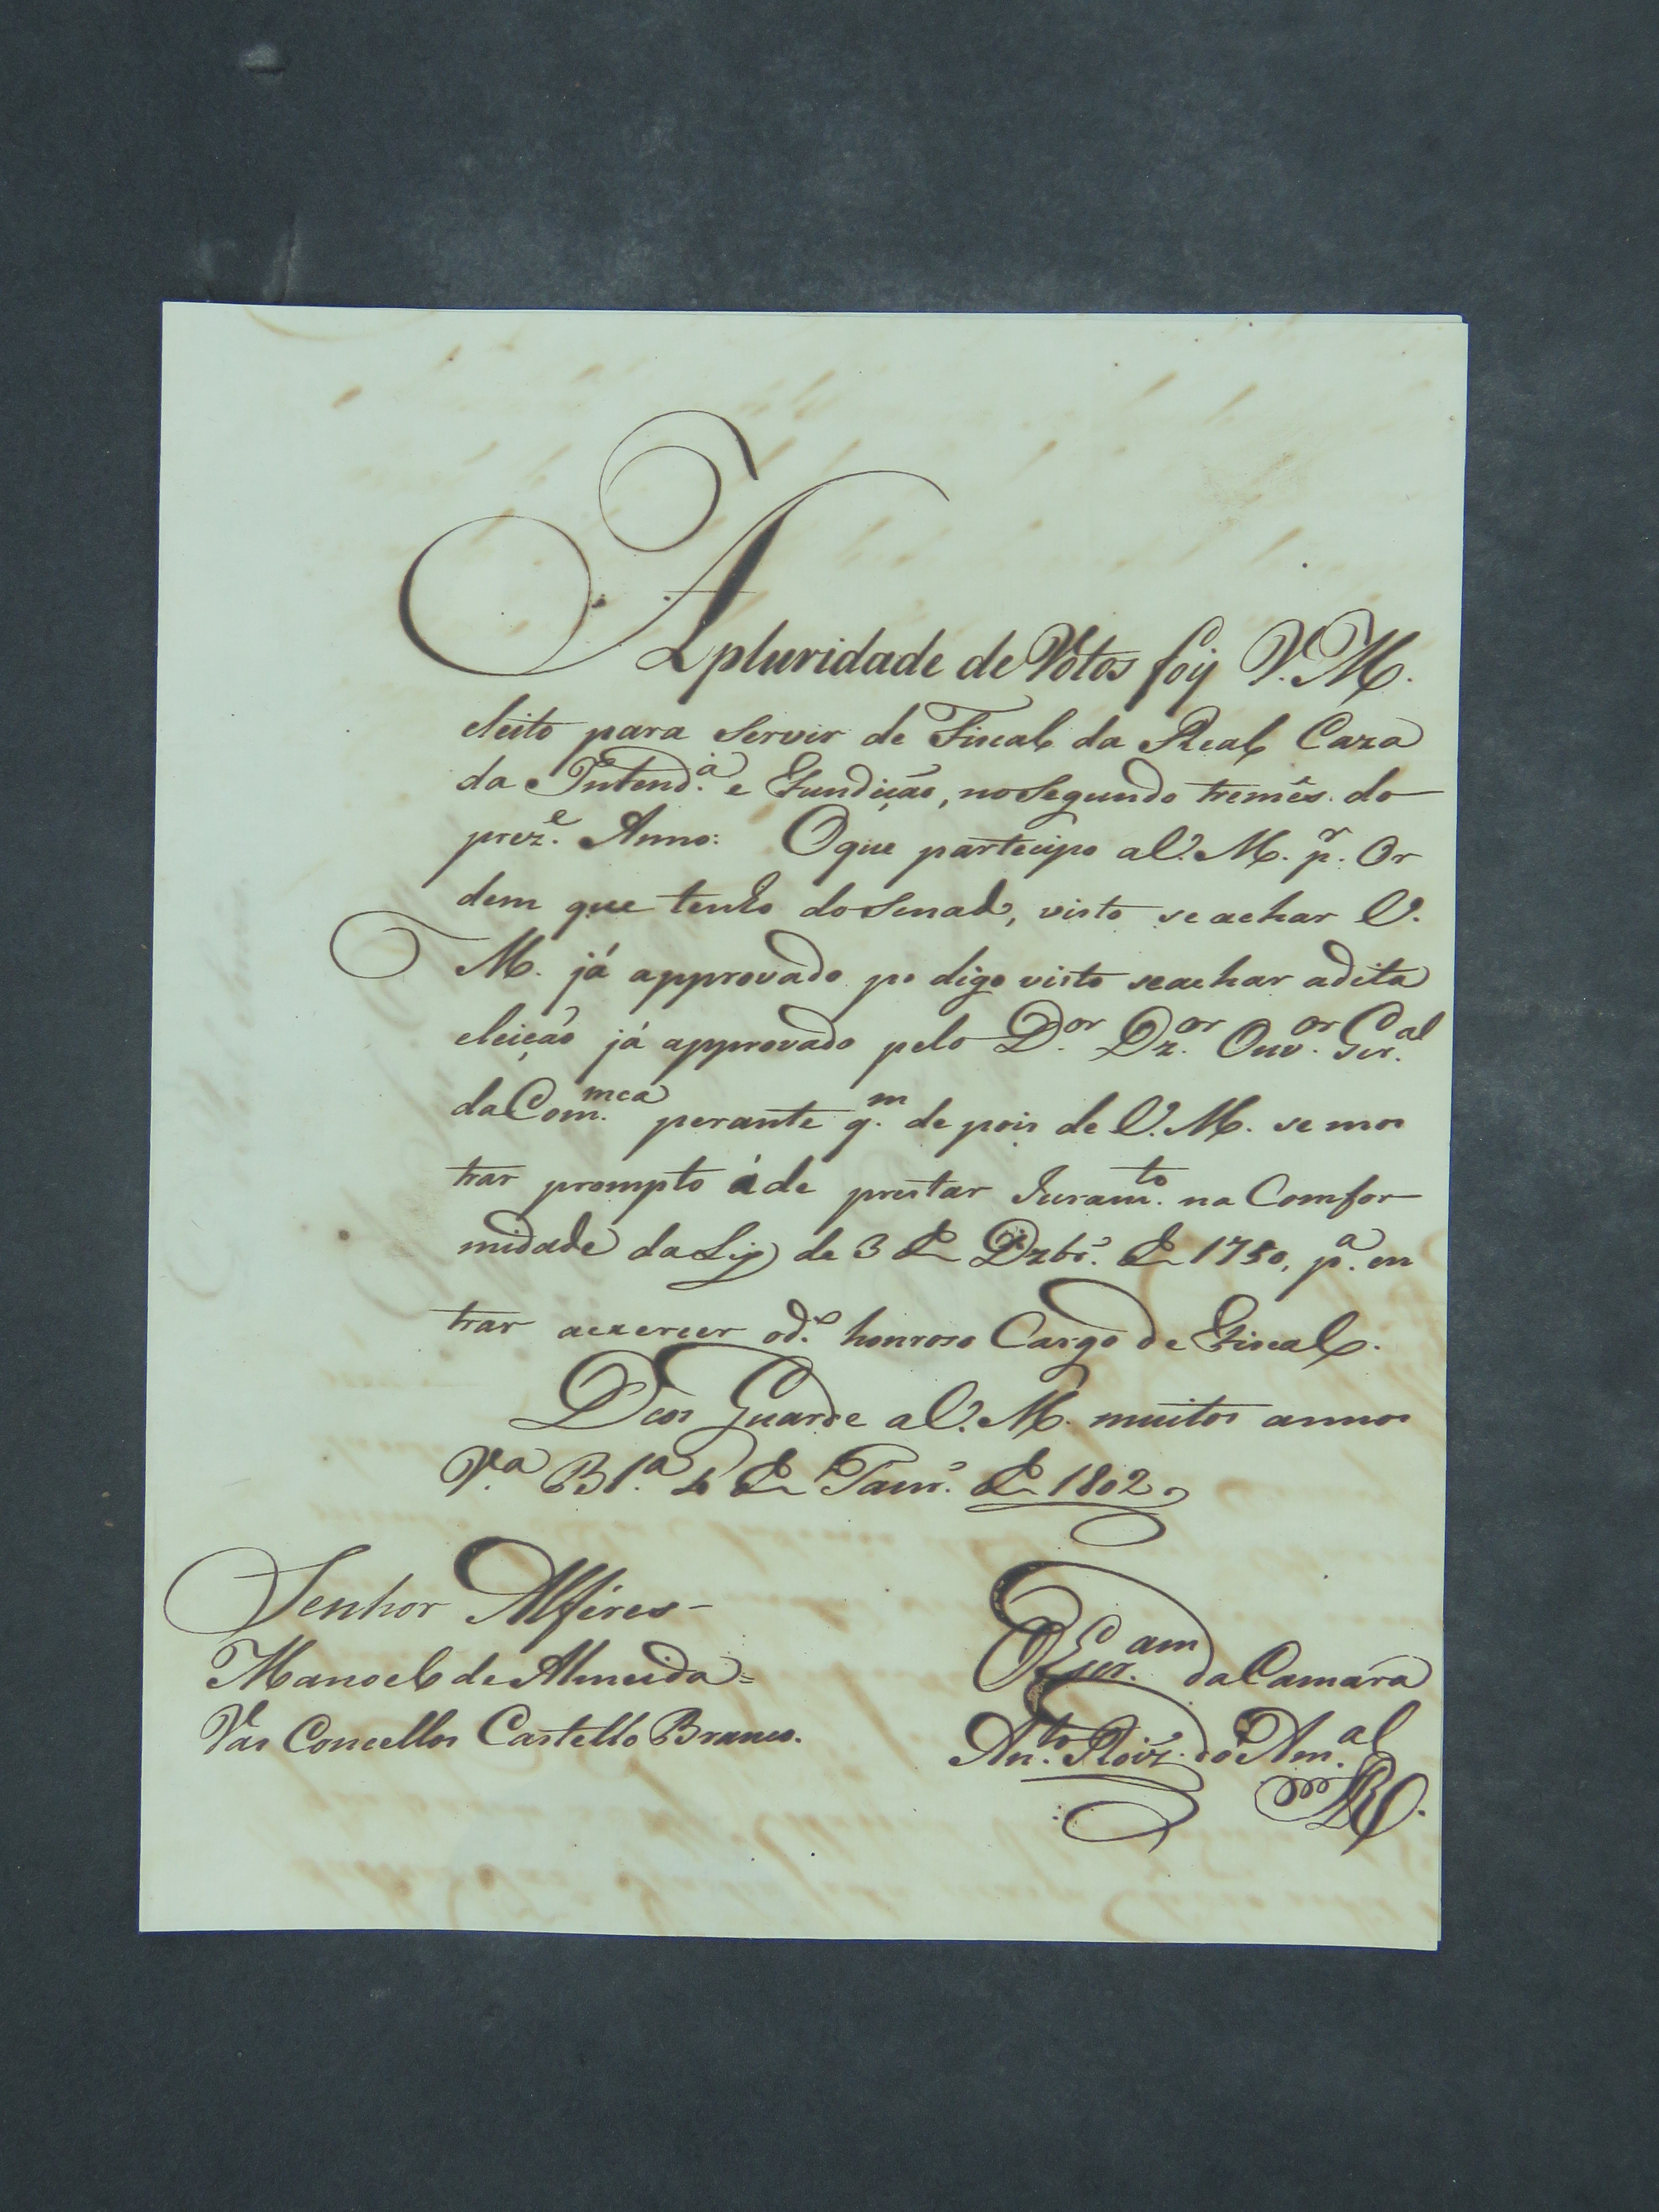 A pluridade de Votos foy V. M.
eleito para servir de Fiscal da Real Caza
da Intend.ª e Fundição, no segundo tremês do
prez.e Anno: O que partecipo a V. M. p.r Or
dem que tenho do Senado, visto se achar V.
M. já approvado po digo visto se achar a dita
eleição já approvado pelo D.or Dz.or Ouv.or Ger.al
da Com.mca perante q.m de pois de V. M. se mos
trar prompto á de prestar Juram.to na Comfor
midade da Ley de 3 de Dzbr.o de 1750, p.a en
trar a exercer o d.o honroso Cargo de Fiscal.
Deos Guarde a V. M. muitos annos
V.a B.a de Janr.o de 1802
Senhor Alferes
Manoel de Almeida =
Vas Concellos Castello Branco.
O Escr.am da Camara
An.to Roiz' do Am.al